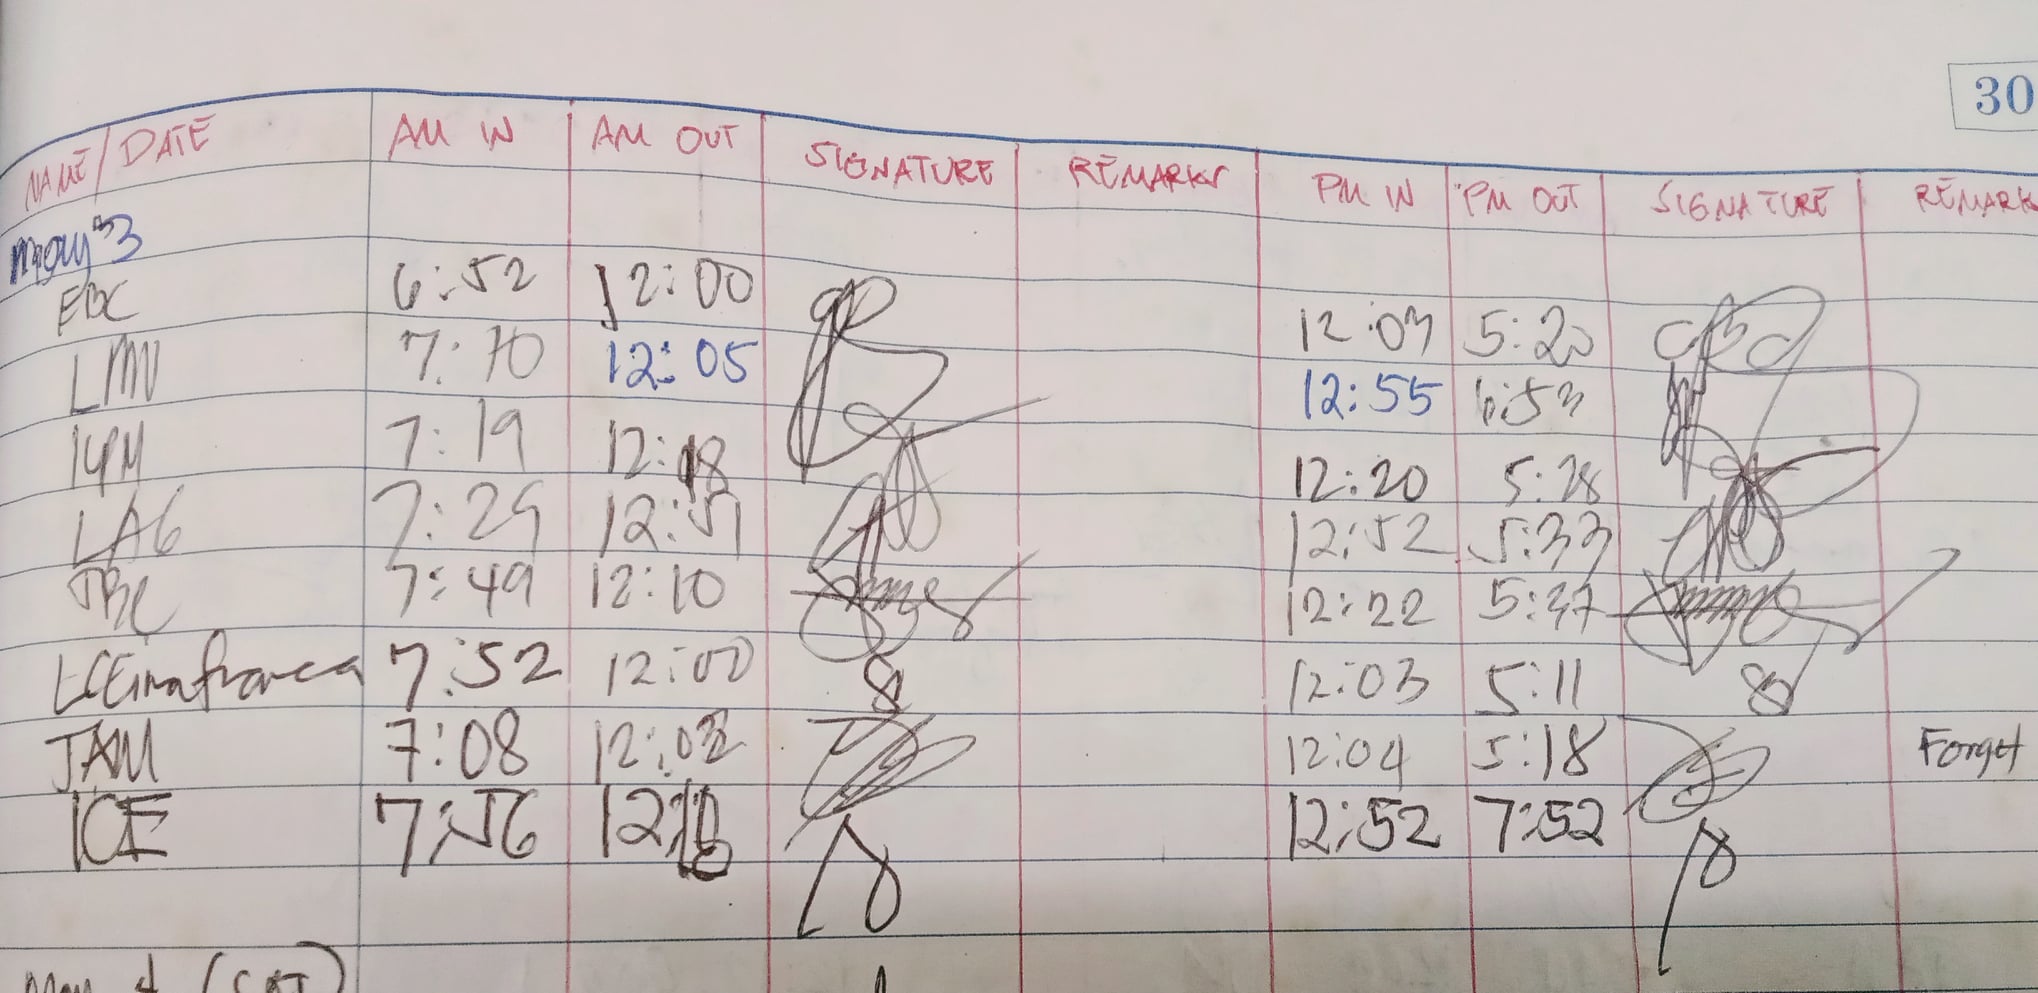 30
NAME/DATE AM IN AM OUT SIGNATURE REMARKS PM IN PM OUT SIGNATURE REMARK
May 3
EBC 6:52 12:00 12:03 5:20
LMV 7:10 12:05 12:55 6:53
7:19 12:18 12:20 5:28
LAG 7:29 12:51 12:52 5:33
JBC 7:49 12:10 12:22 5:37
7:52 12:00 12:03 5:11
JAM 7:08 12:04 5:18 Forget
ICE 7:56 12:52 7:52
May 4 (SAT)